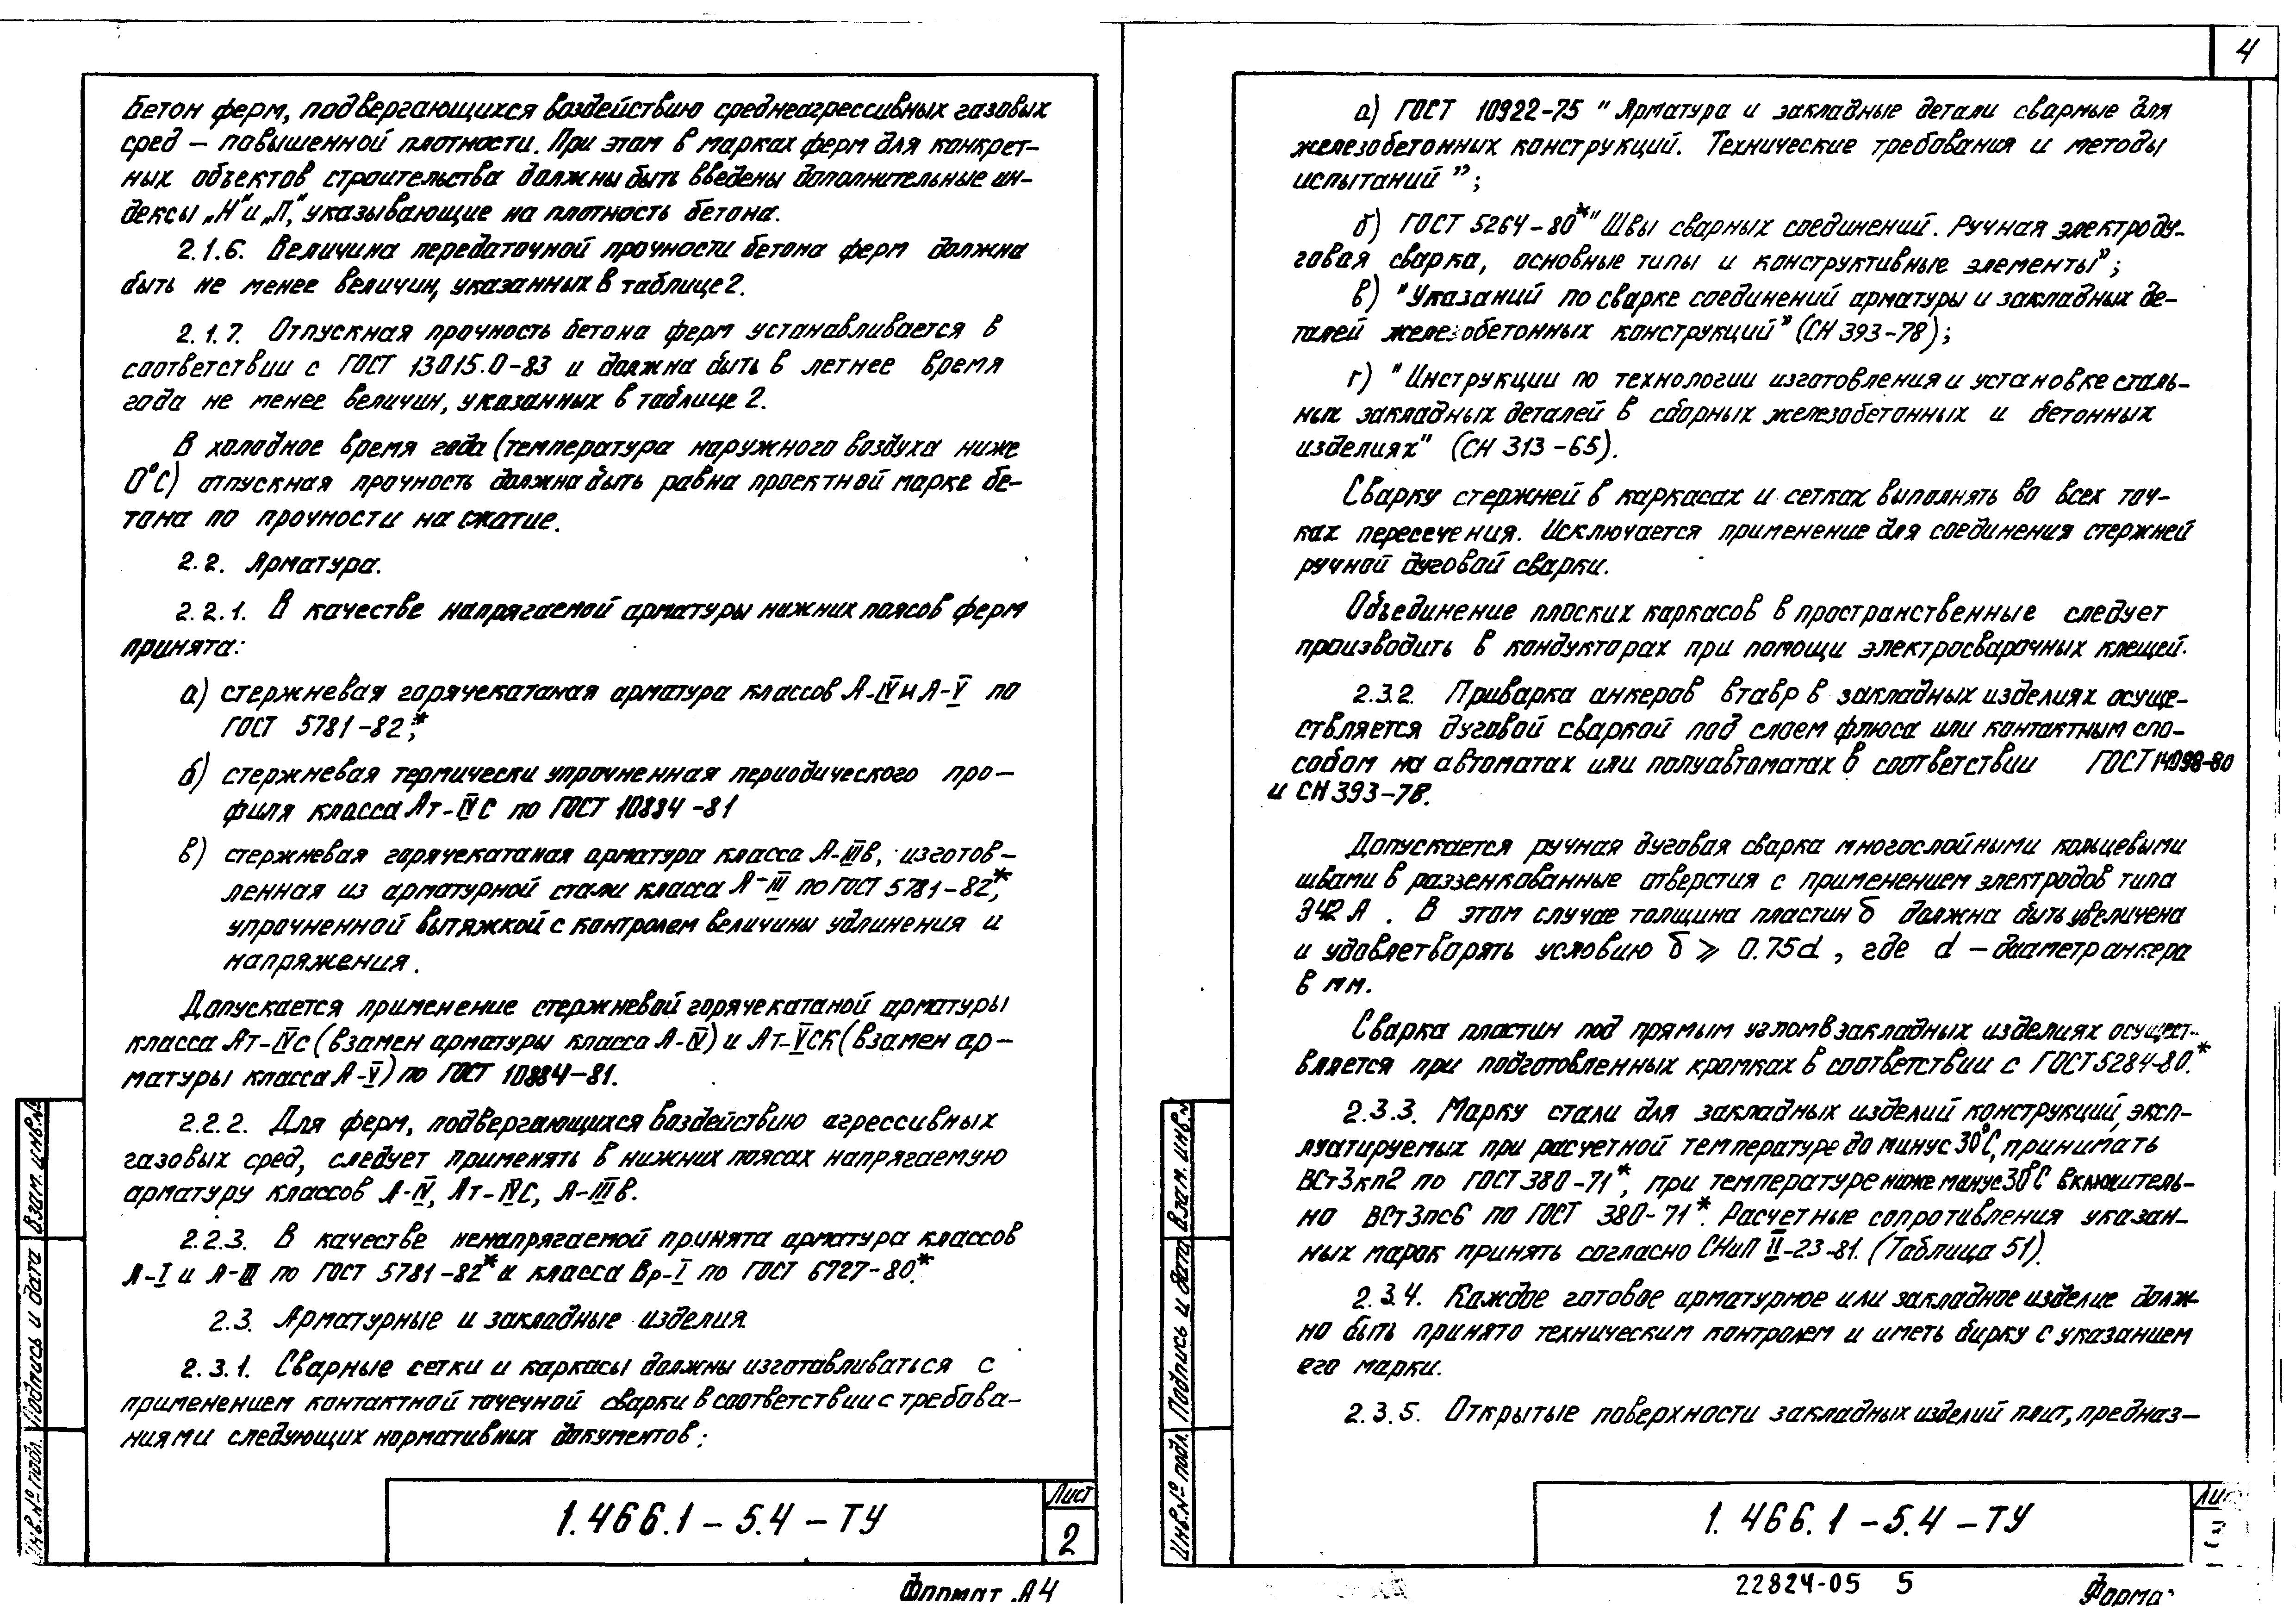 Бетон ферм, подвергающихся воздействию среднеагрессивных газовых
сред — повышенной плотности. При этом в марках ферм для конкрет-
ных объектов строительства должны быть введены дополнительные ин-
дексы „Н" и „П," указывающие на плотность бетона.
2.1.6. Величина передаточной прочности бетона ферм должна
быть не менее величин, указанных в таблице 2.
2.1.7. Отпускная прочность бетона ферм устанавливается в
соответствии с ГОСТ 13015.0-83 и должна быть в летнее время
года не менее величин, указанных в таблице 2.
В холодное время года (температура наружного воздуха ниже
0°С) отпускная прочность должна быть равна проектной марке бе-
тона по прочности на сжатие.
2.2. Арматура.
2.2.1. В качестве напрягаемой арматуры нижних поясов ферм
принята:
а) стержневая горячекатаная арматура классов А-IV и А-V по
ГОСТ 5781-82*;
б) стержневая термически упрочненная периодического про-
филя класса Ат-IVС по ГОСТ 10884-81
в) стержневая горячекатаная арматура класса А-IIIв, изготов-
ленная из арматурной стали класса А-III по ГОСТ 5781-82*,
упрочненной вытяжкой с контролем величины удлинения и
напряжения.
Допускается применение стержневой горячекатаной арматуры
класса Ат-IVс (взамен арматуры класса А-IV) и Ат-VСК (взамен ар-
матуры класса А-V) по ГОСТ 10884-81.
2.2.2. Для ферм, подвергающихся воздействию агрессивных
газовых сред, следует применять в нижних поясах напрягаемую
арматуру классов А-IV, Ат-IVС, А-IIIв.
2.2.3. В качестве ненапрягаемой принята арматура классов
А-I и А-III по ГОСТ 5781-82* и класса Вр-I по ГОСТ 6727-80*.
2.3. Арматурные и закладные изделия
2.3.1. Сварные сетки и каркасы должны изготавливаться с
применением контактной точечной сварки в соответствии с требова-
ниями следующих нормативных документов:
Инв.№ подл. Подпись и дата Взам. инв.№
1.466.1-5.4-ТУ
Лист
2
Формат А4
4
а) ГОСТ 10922-75 "Арматура и закладные детали сварные для
железобетонных конструкций. Технические требования и методы
испытаний";
б) ГОСТ 5264-80* "Швы сварных соединений. Ручная электроду-
говая сварка, основные типы и конструктивные элементы";
в) "Указаний по сварке соединений арматуры и закладных де-
талей железобетонных конструкций" (СН 393-78);
г) "Инструкции по технологии изготовления и установке сталь-
ных закладных деталей в сборных железобетонных и бетонных
изделиях" (СН 313-65).
Сварку стержней в каркасах и сетках выполнять во всех точ-
ках пересечения. Исключается применение для соединения стержней
ручной дуговой сварки.
Объединение плоских каркасов в пространственные следует
производить в кондукторах при помощи электросварочных клещей.
2.3.2. Приварка анкеров втавр в закладных изделиях осуще-
ствляется дуговой сваркой под слоем флюса или контактным спо-
собом на автоматах или полуавтоматах в соответствии ГОСТ 14098-80
и СН 393-78.
Допускается ручная дуговая сварка многослойными кольцевыми
швами в раззенкованные отверстия с применением электродов типа
Э42А. В этом случае толщина пластин δ должна быть увеличена
и удовлетворять условию δ ⩾ 0.75d, где d — диаметр анкера
в мм.
Сварка пластин под прямым углом в закладных изделиях осущест-
вляется при подготовленных кромках в соответствии с ГОСТ 5284-80*.
2.3.3. Марку стали для закладных изделий конструкций, эксп-
луатируемых при расчетной температуре до минус 30°С, принимать
ВСт3кп2 по ГОСТ 380-71*, при температуре ниже минус 30°С включитель-
но ВСт3пс6 по ГОСТ 380-71*. Расчетные сопротивления указан-
ных марок принять согласно СНиП II-23-81. (Таблица 51).
2.3.4. Каждое готовое арматурное или закладное изделие долж-
но быть принято техническим контролем и иметь бирку с указанием
его марки.
2.3.5. Открытые поверхности закладных изделий плит, предназ-
Инв.№ подл. Подпись и дата Взам. инв.№
1.466.1-5.4-ТУ
22824-05 5